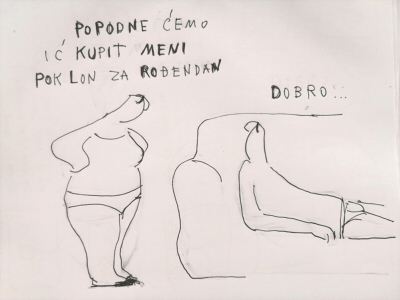 POPODNE ĆEMO
IĆ KUPIT MENI
POKLON ZA ROĐENDAN
DOBRO...